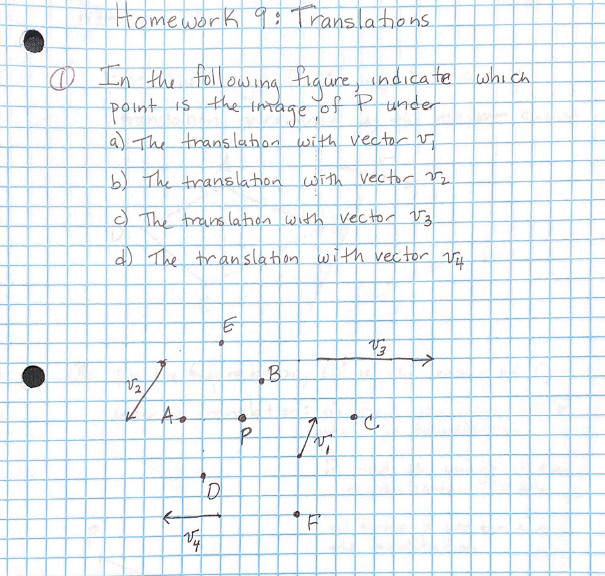 Homework 9: Translations
① In the following figure, indicate which
point is the image of P under
a) The translation with vector v₁
b) The translation with vector v₂
c) The translation with vector v₃
d) The translation with vector v₄
E
v₃
B
v₂
A
P
C
v₁
D
F
v₄